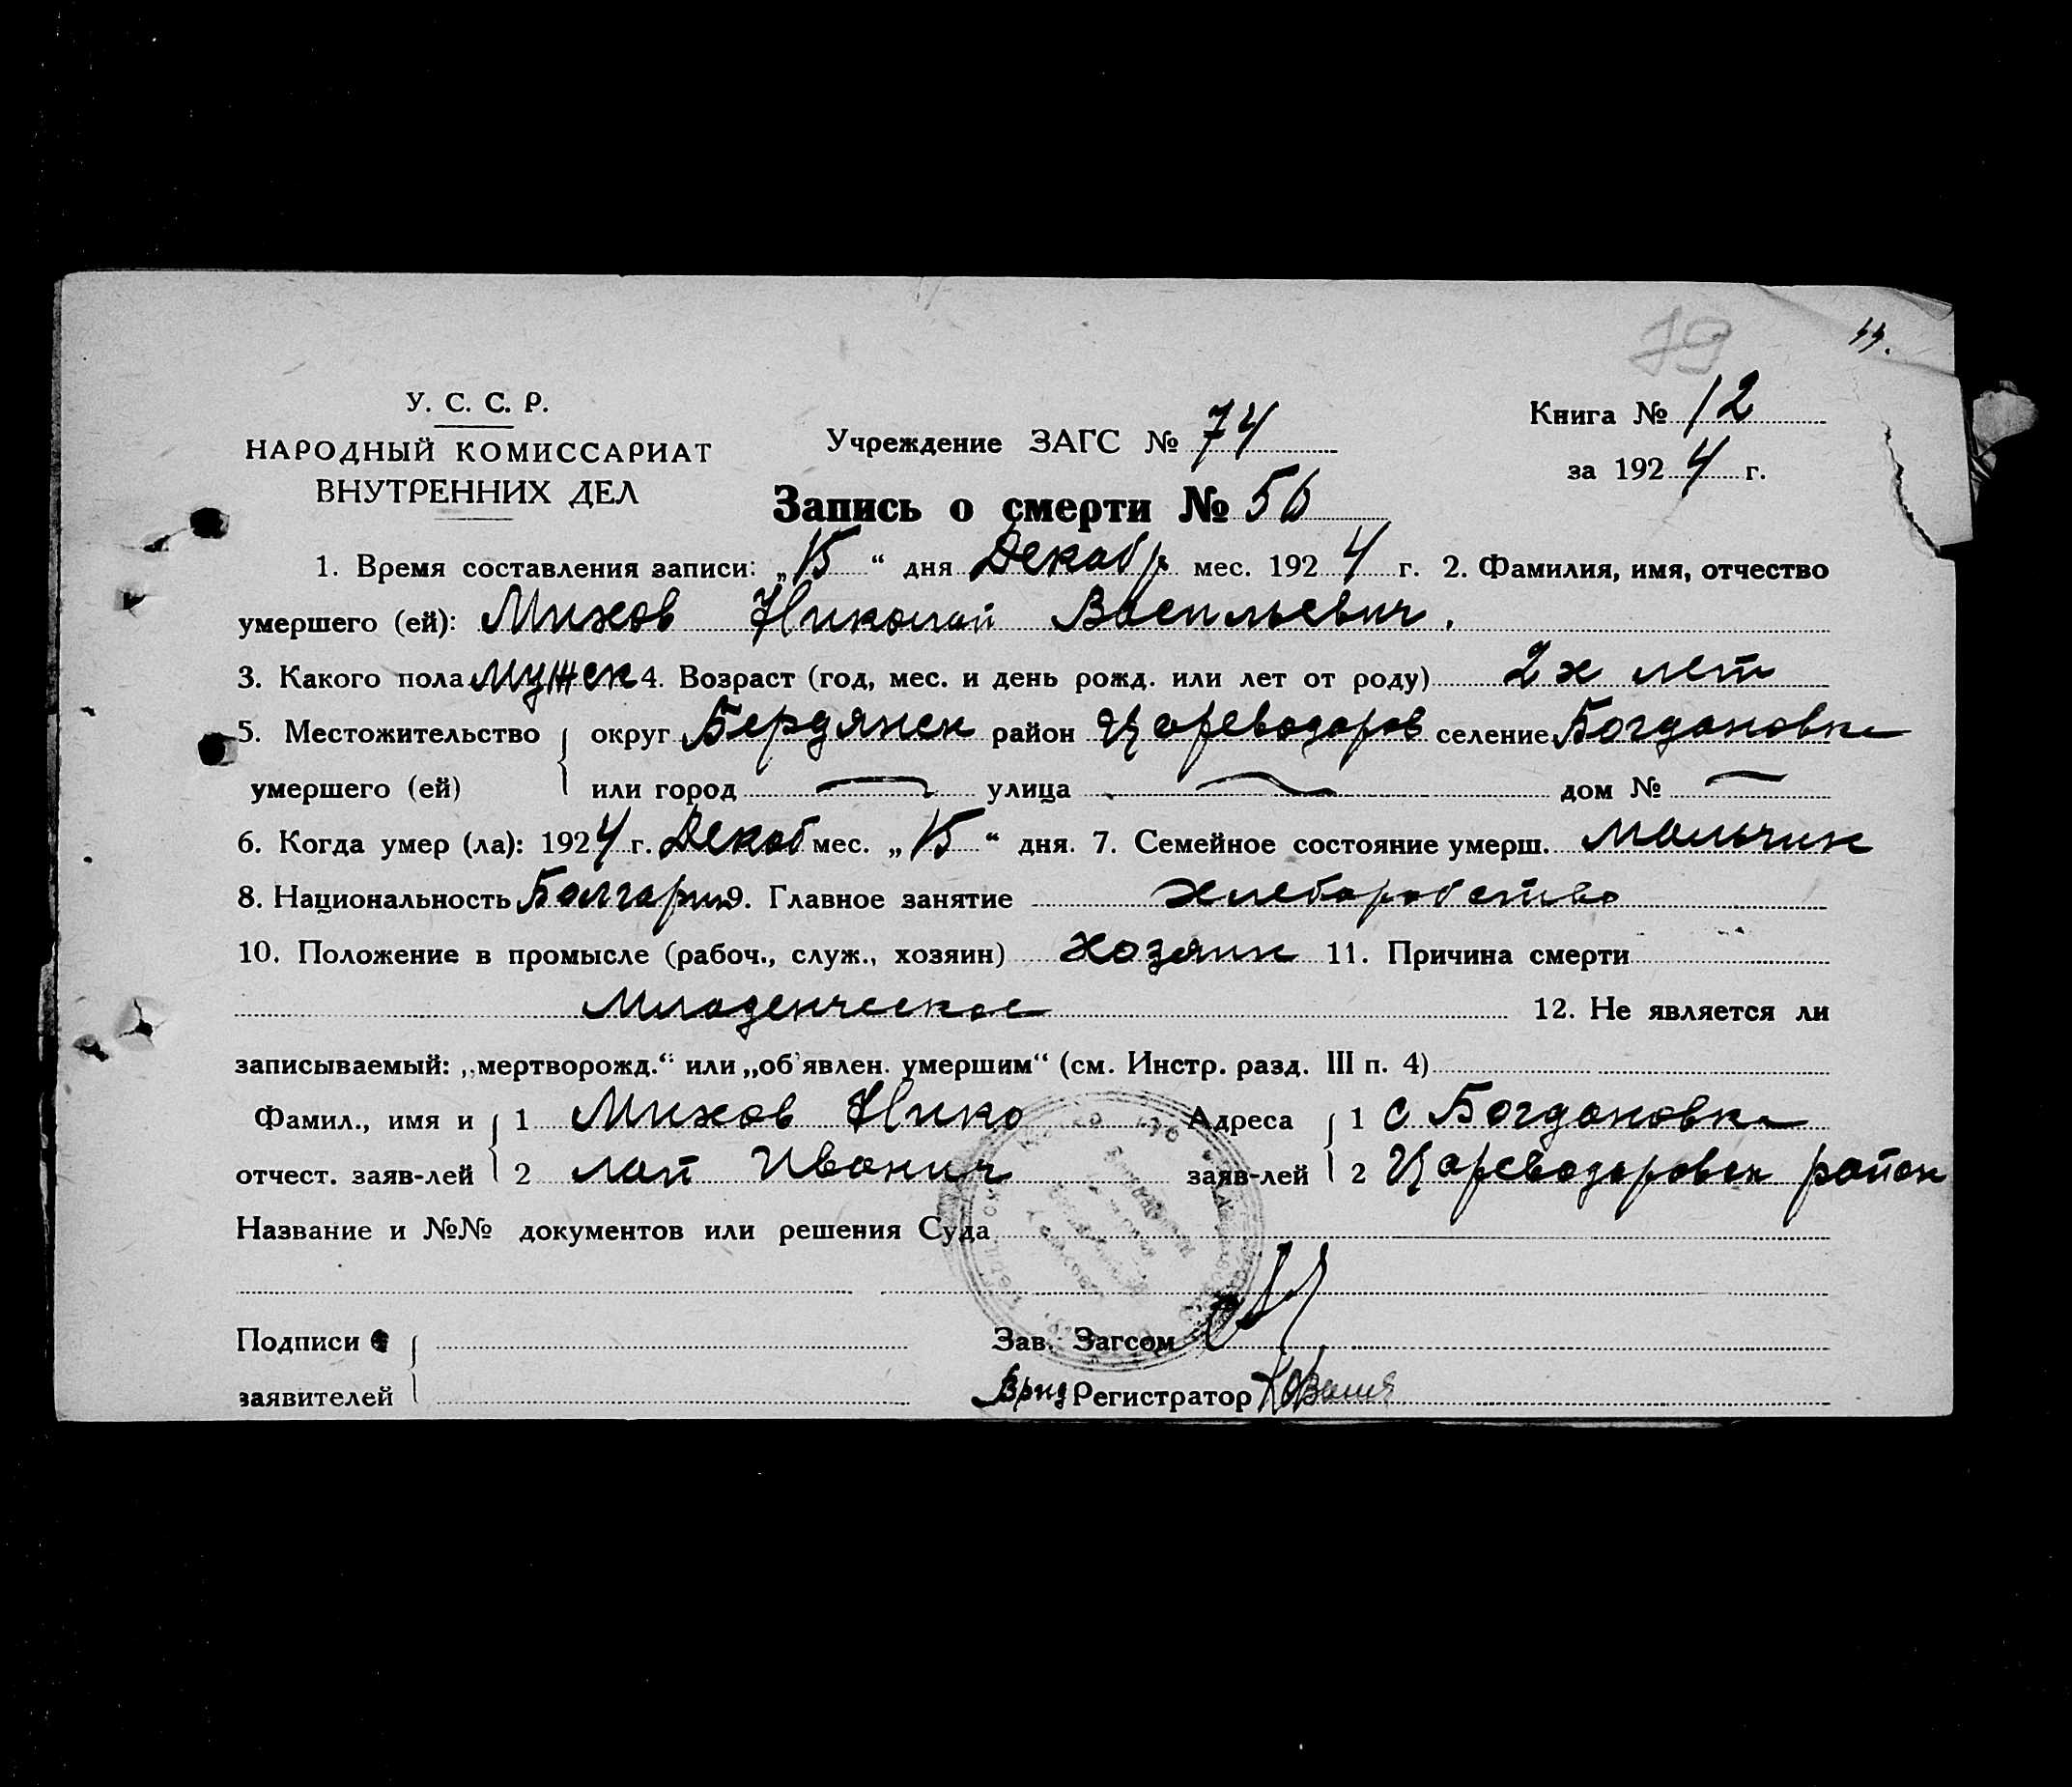 79
У. С. С. Р.
НАРОДНЫЙ КОМИССАРИАТ
ВНУТРЕННИХ ДЕЛ
Учреждение ЗАГС № 74
Книга № 12
за 1924 г.
Запись о смерти № 56
1. Время составления записи: „15“ дня Декабр мес. 1924 г. 2. Фамилия, имя, отчество
умершего (ей): Михов Николай Васильевич.
3. Какого пола мужск 4. Возраст (год, мес. и день рожд. или лет от роду) 2х лет
5. Местожительство округ Бердянск район Цареводаров селение Богдановка
умершего (ей) или город — улица — дом № —
6. Когда умер (ла): 1924 г. Декаб мес. „15“ дня. 7. Семейное состояние умерш. мальчик
8. Национальность Болгарин 9. Главное занятие хлеборобство
10. Положение в промысле (рабоч., служ., хозяин) хозяин 11. Причина смерти
Младенческое 12. Не является ли
записываемый: „мертворожд.“ или „об'явлен. умершим“ (см. Инстр. разд. III п. 4)
Фамил., имя и 1 Михов Нико Адреса 1 с Богдановка
отчест. заяв-лей 2 лай Иванич заяв-лей 2 Цареводаровск район
Название и №№ документов или решения Суда
Подписи Зав. Загсом
заявителей Врид Регистратор